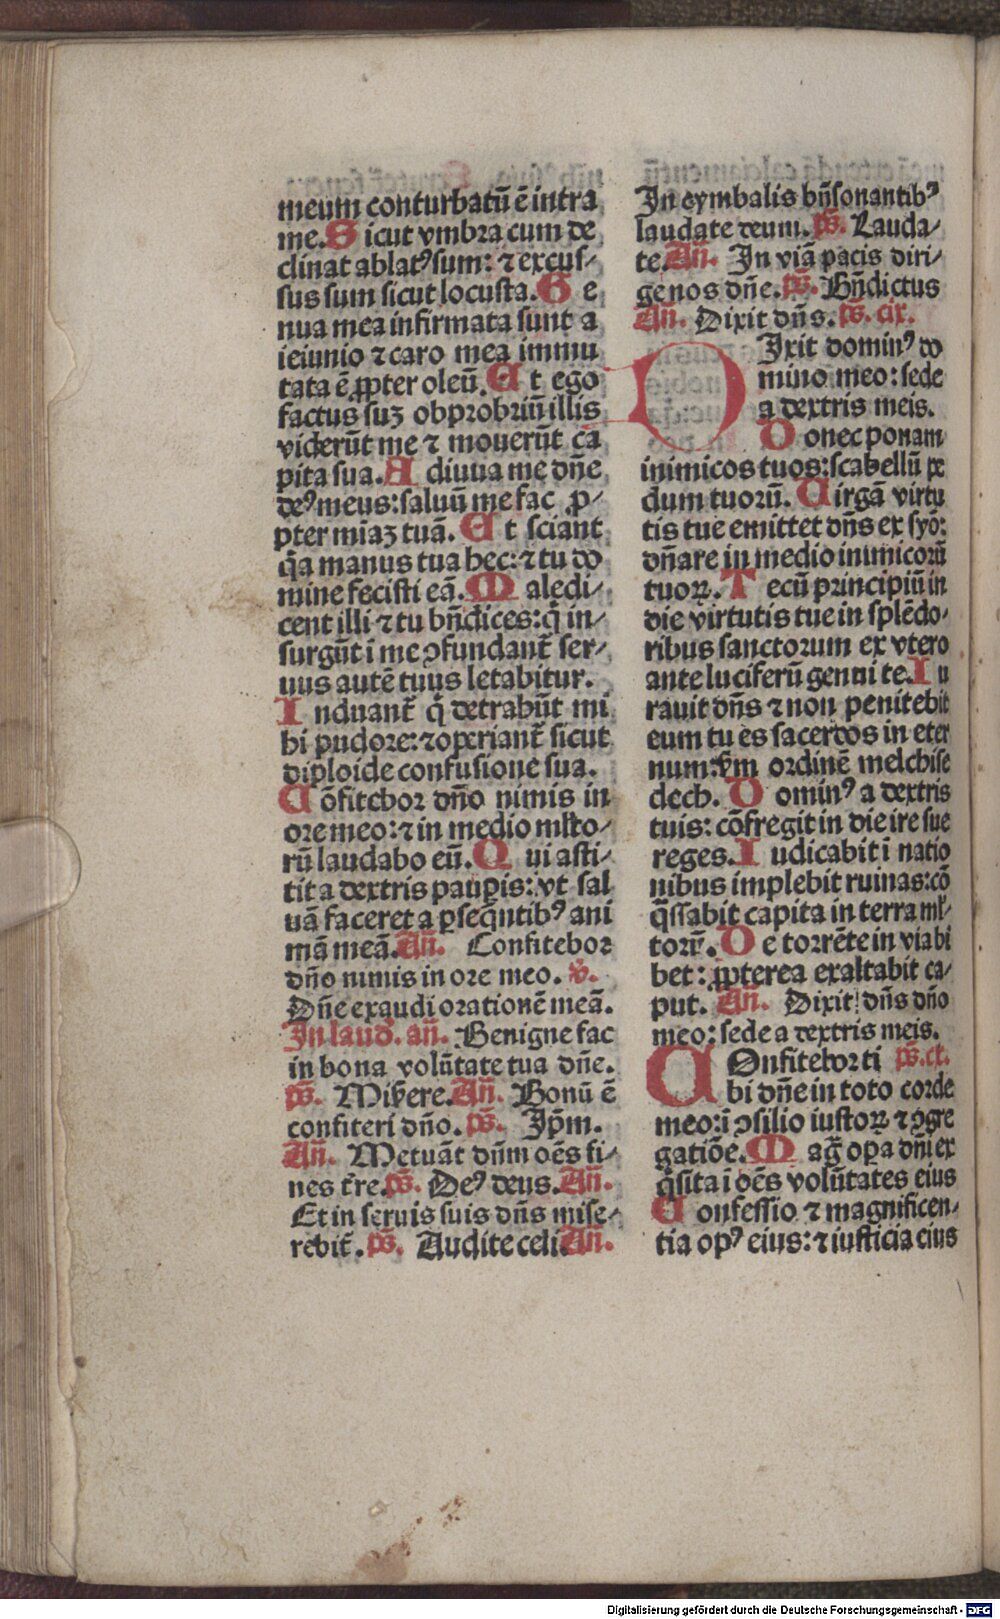 meum conturbatū ē intra
me. Sicut vmbra cum de
clinat ablatꝰ sum: ⁊ excus/
sus sum sicut locusta. Ge
nua mea infirmata sunt a
ieiunio ⁊ caro mea immu
tata ē ꝓpter oleū. Et ego
factus suꝫ obprobriū illis
viderūt me ⁊ mouerūt ca
pita sua. Adiuua me dn̄e
deꝰ meus: saluū me fac ꝓ/
pter miaꝫ tuā. Et sciant
q̄a manus tua hec: ⁊ tu do
mine fecisti eā. Maledi/
cent illi ⁊ tu bn̄dices: q̄ in/
surgūt ī me ꝯfundant̄ ser/
uus autē tuus letabitur.
Induant̄ q̄ detrahūt mi
hi pudore: ⁊ operiant̄ sicut
diploide confusione sua.
Cōfitebor dn̄o nimis in
ore meo: ⁊ in medio ml̄to/
rū laudabo eū. Qui asti/
tit a dextris pauꝑis: vt sal
uā faceret a ꝑseq̄ntibꝰ ani
mā meā. An̄. Confitebor
dn̄o nimis in ore meo. v̄.
Dn̄e exaudi orationē meā.
In laud. an̄. Benigne fac
in bona volūtate tua dn̄e.
ps̄. Miẜere. An̄. Bonū ē
confiteri dn̄o. ps̄. Ip̄m.
An̄. Metuāt dn̄m oēs fi/
nes t̄re. ps̄. Deꝰ deus. An̄.
Et in seruis suis dn̄s mise/
rebit̄. ps̄. Audite celi. An̄.
In cymbalis bn̄sonantibꝰ
laudate deum. ps̄. Lauda/
te. An̄. In viā pacis diri/
ge nos dn̄e. ps̄. Bn̄dictus
An̄. Dixit dn̄s. ps̄. cix.
DIxit dominꝰ do
mino meo: sede
a dextris meis.
Donec ponam
inimicos tuos: scabellū pe
dum tuorū. Uirgā virtu
tis tue emittet dn̄s ex syō:
dn̄are in medio inimicorū
tuoꝝ. Tecū principiū in
die virtutis tue in splēdo/
ribus sanctorum ex vtero
ante luciferū genui te. Iu
rauit dn̄s ⁊ non penitebit
eum tu es sacerdos in eter
num: ẜm ordinē melchise
dech. Dominꝰ a dextris
tuis: cōfregit in die ire sue
reges. Iudicabit ī natio
nibus implebit ruinas: cō
q̄ssabit capita in terra ml̄/
toꝝ. De torrēte in via bi
bet: ꝓpterea exaltabit ca/
put. An̄. Dixit dn̄s dn̄o
meo: sede a dextris meis.
COnfitebor ti ps̄. cx.
bi dn̄e in toto corde
meo: ī ꝯsilio iustoꝝ ⁊ ꝯgre
gatiōe. Maḡ oꝑa dn̄i ex
q̄sita ī oēs volūtates eius
Confessio ⁊ magnificen/
tia opꝰ eius: ⁊ iusticia eius
Digitalisierung gefördert durch die Deutsche Forschungsgemeinschaft - DFG